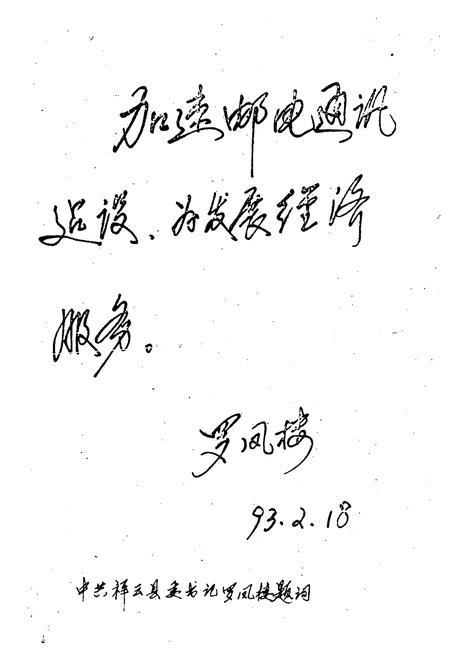 加速邮电通讯
建设、为发展经济
服务。
罗凤楼
93.2.18
中共祥云县委书记罗凤楼题词